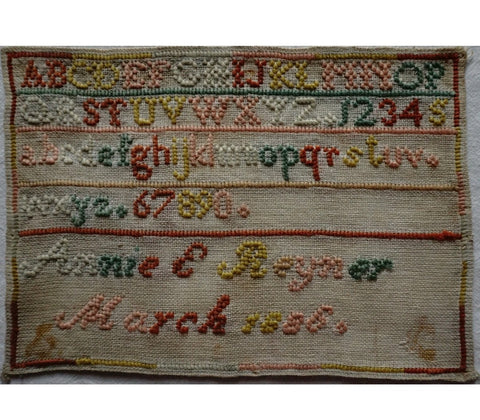 ABCDEFGHIJKLMNOP
QRSTUVWXYZ.12345
abcdefghijklmnopqrstuv.
wxyz. 67890.
Annie E Reyner
March